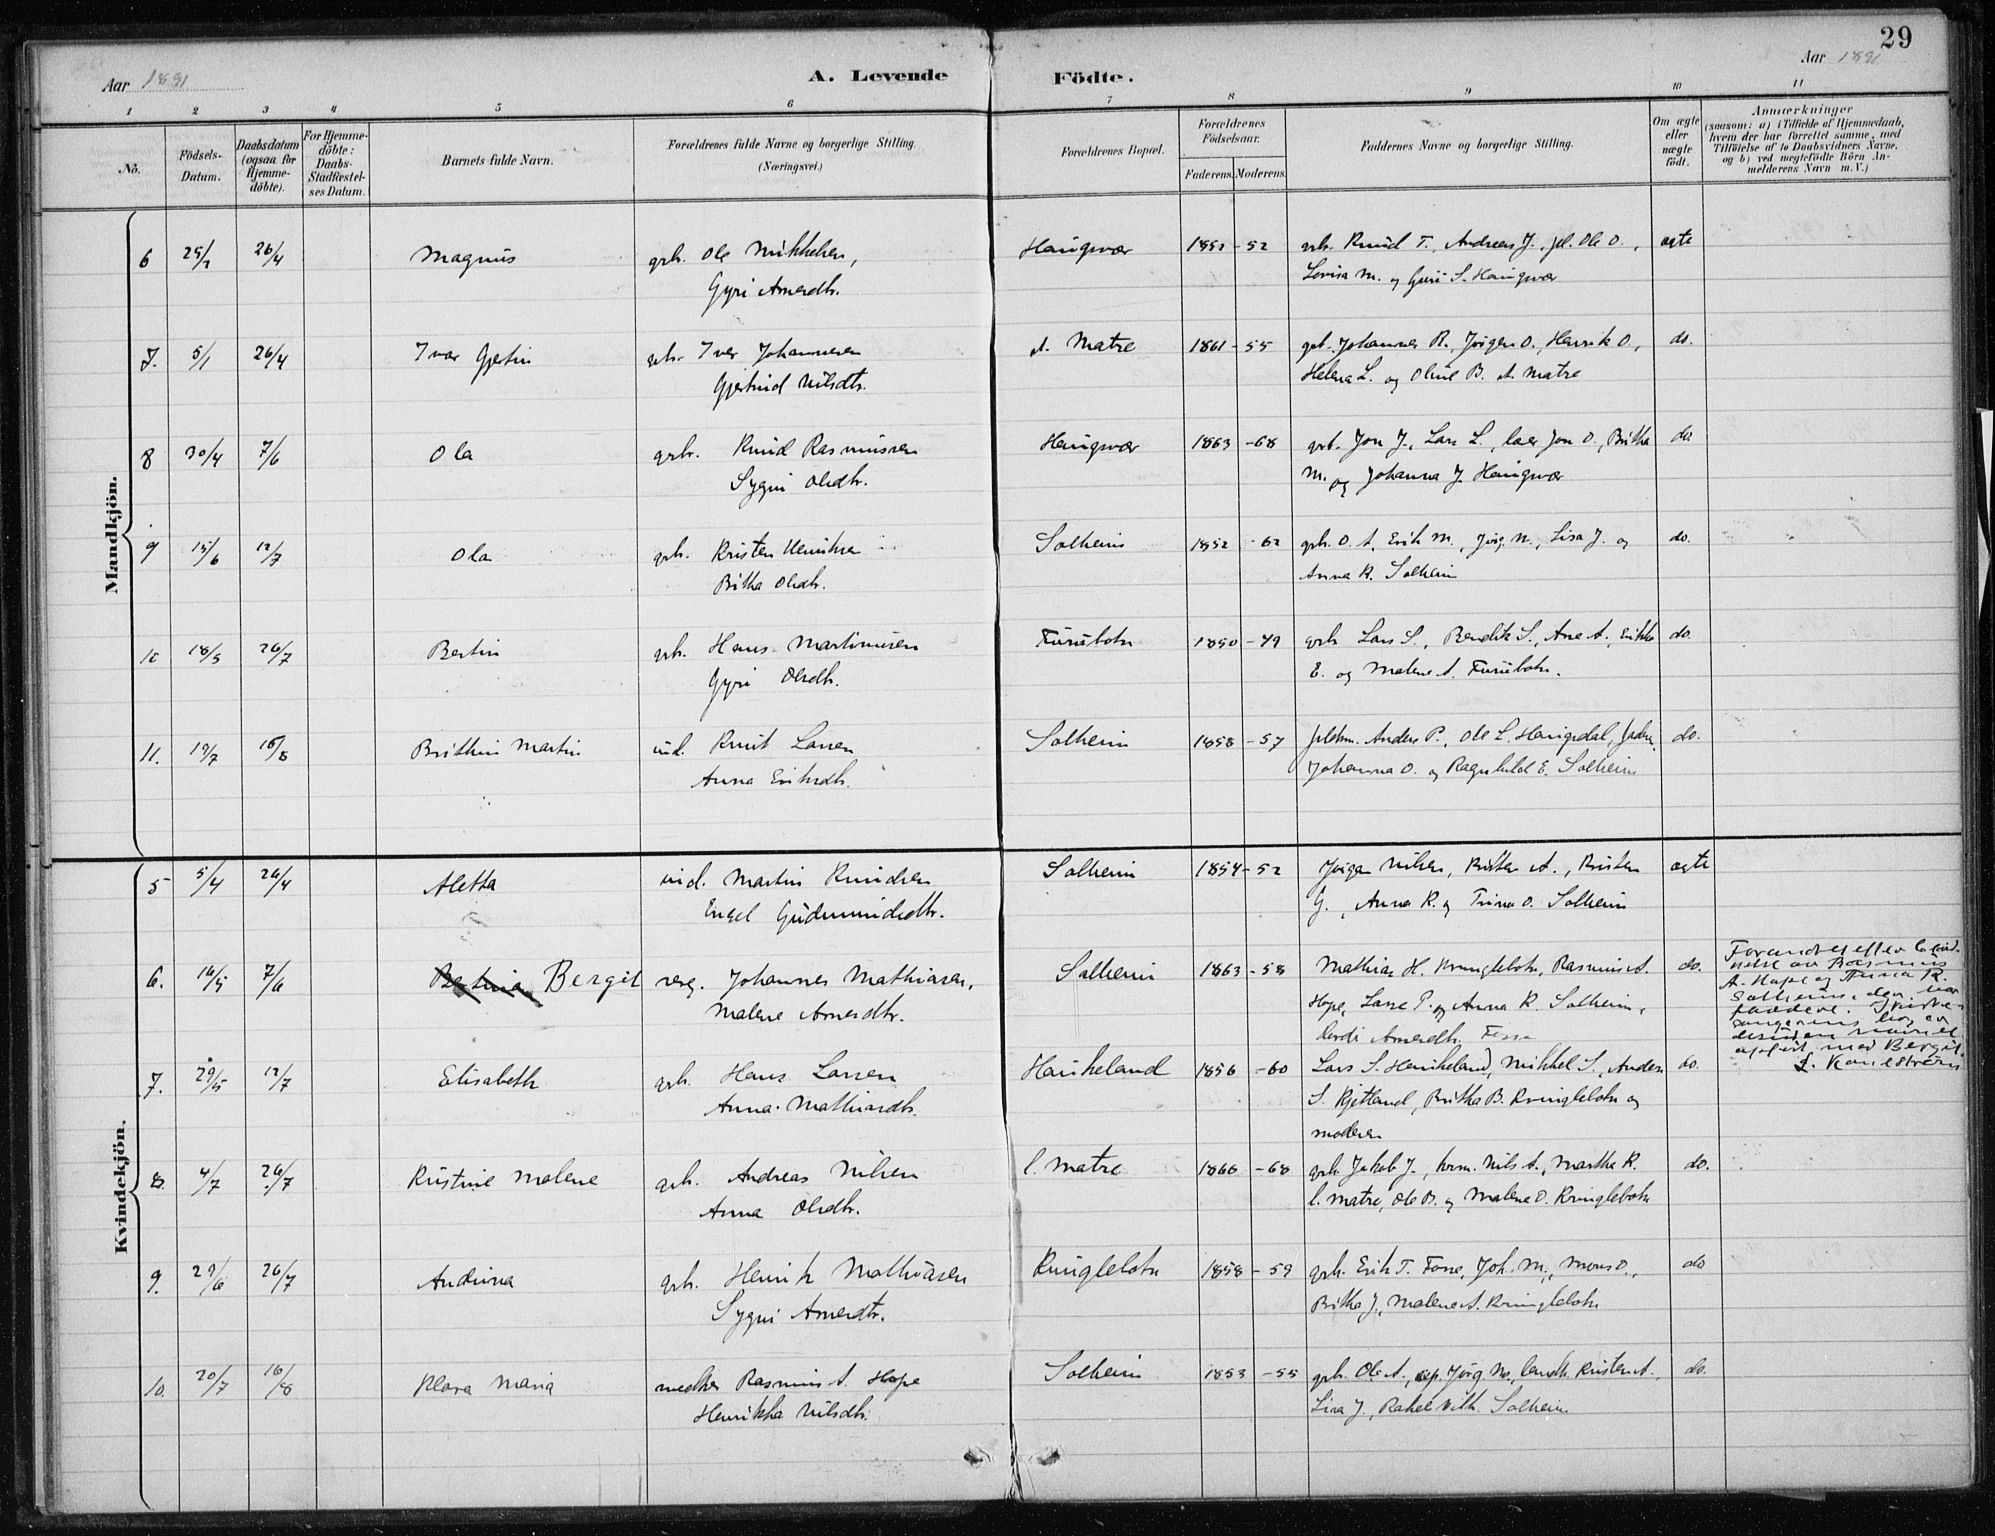 29
Aar 1891. A. Levende Födte. Aar 1891
1 2 3 4 5 6 7 8 9 10 11
No.
Födsels-Datum.
Daabsdatum (ogsaa for Hjemmedöbte).
For Hjemmedöbte: Daabs-Stadfæstelses Datum.
Barnets fulde Navn.
Forældrenes fulde Navne og borgerlige Stilling. (Næringsvei.)
Forældrenes Bopæl.
Forældrenes Födselsaar. Faderens. Moderens.
Faddernes Navne og borgerlige Stilling.
Om ægte eller uægte födt.
Anmærkninger (saasom: a) i Tilfælde af Hjemmedaab, hvem der har forrettet samme, med Tilföielse af to Daabsvidners Navne, og b) ved uægtefödte Börn Anmelderens Navn m.V.)
Mandkjön.
6 25/2 26/4 Magnus grb. Ole Mikkelsen, Haugsvær 1852 - 52 grb. Knud T., Andreas J., pl. Ole O., ægte
Gyri Arnesdtr. Lovisa M. og Guri S. Haugsvær
7. 5/1 26/4 Ivar Gjertin grb. Iver Johannesen A. Matre 1861 - 55 grb. Johannes R., Jörgen O., Henrik O., do.
Gjertrud Nilsdtr. Helena L. og Oline B. A. Matre
8 30/4 7/6 Ola grbr. Knud Rasmussen Haugsvær 1863 - 68 grb. Jon J., Lars L., lær Jon O., Britha do
Sygni Olsdtr. M. og Johanna J. Haugsvær
9 15/6 12/7 Ola grb. Kristen Henriksen Solheim 1852 - 62 grb. O. A. Erik M., Jörg. N., Lisa J. og do.
Britha Olsdtr. Anna K. Solheim
10 18/5 26/7 Bertin grb. Hans Martinusen Furubotn 1850 - 49 grb. Lars S., Bendik S., Ane A., Erikka do.
Gyri Olsdtr. E. og Malene A. Furubotn.
11. 19/7 16/8 Brithin Martin ind. Knut Larsen Solheim 1858 - 57 Anders P., Ole L. Haugsdal, do.
Anna Eriksdtr. Johanna O. og Ragnhild E. Solheim
Kvindekjön.
5 5/4 26/4 Aletta ind. Martin Knudsen Solheim 1854 - 52 Jörgen Nilsen, Kristen A., Kristen ægte
Engel Gudmundsdtr. G., Anna K. og Trina O. Solheim
6. 16/5 7/6 Bertina Bergit Johannes Mathiasen, Solheim 1863 - 58 Mathias H. Kringlebotn, Rasmus A. do.
Malene Arnesdtr. Hope, Lasse P. og Anna K. Solheim,
Arnesdtr. Fosse
Forandret efter
av Rasmus
A. Hope og Anna K.
Solheim, der var
faddere.
desuden navnet
opfört med Bergit.
7. 29/5 12/7 Elisabeth grb. Hans Larsen Haukeland 1856 - 60 Lars S. Haukeland, Mikkel S., Anders do.
Anna Mathiasdtr. S. Kjetland, Britha B. Kringlebotn og
moderen
8. 4/7 26/7 Kristine Malene grb. Andreas Nilsen I. Matre 1866 - 68 grb. Jakob J., Nils A., Martha K. do.
Anna Olsdtr. I. Matre, Ole B. og Malene O. Kringlebotn
9. 29/6 26/7 Andrina grb. Henrik Mathiasen Kringlebotn 1858 - 59 grb. Erik T. Fosse, Joh. M., Mons O., do
Sygni Arnesdtr. Britha J., Malene A. Kringlebotn
10. 20/7 16/8 Klara Maria Rasmus A. Hope Solheim 1853 - 55 grb. Ole A., Jörg. N., Kristen A., do.
Henrikka Nilsdtr. Lisa J., Rakel Vilh. Solheim